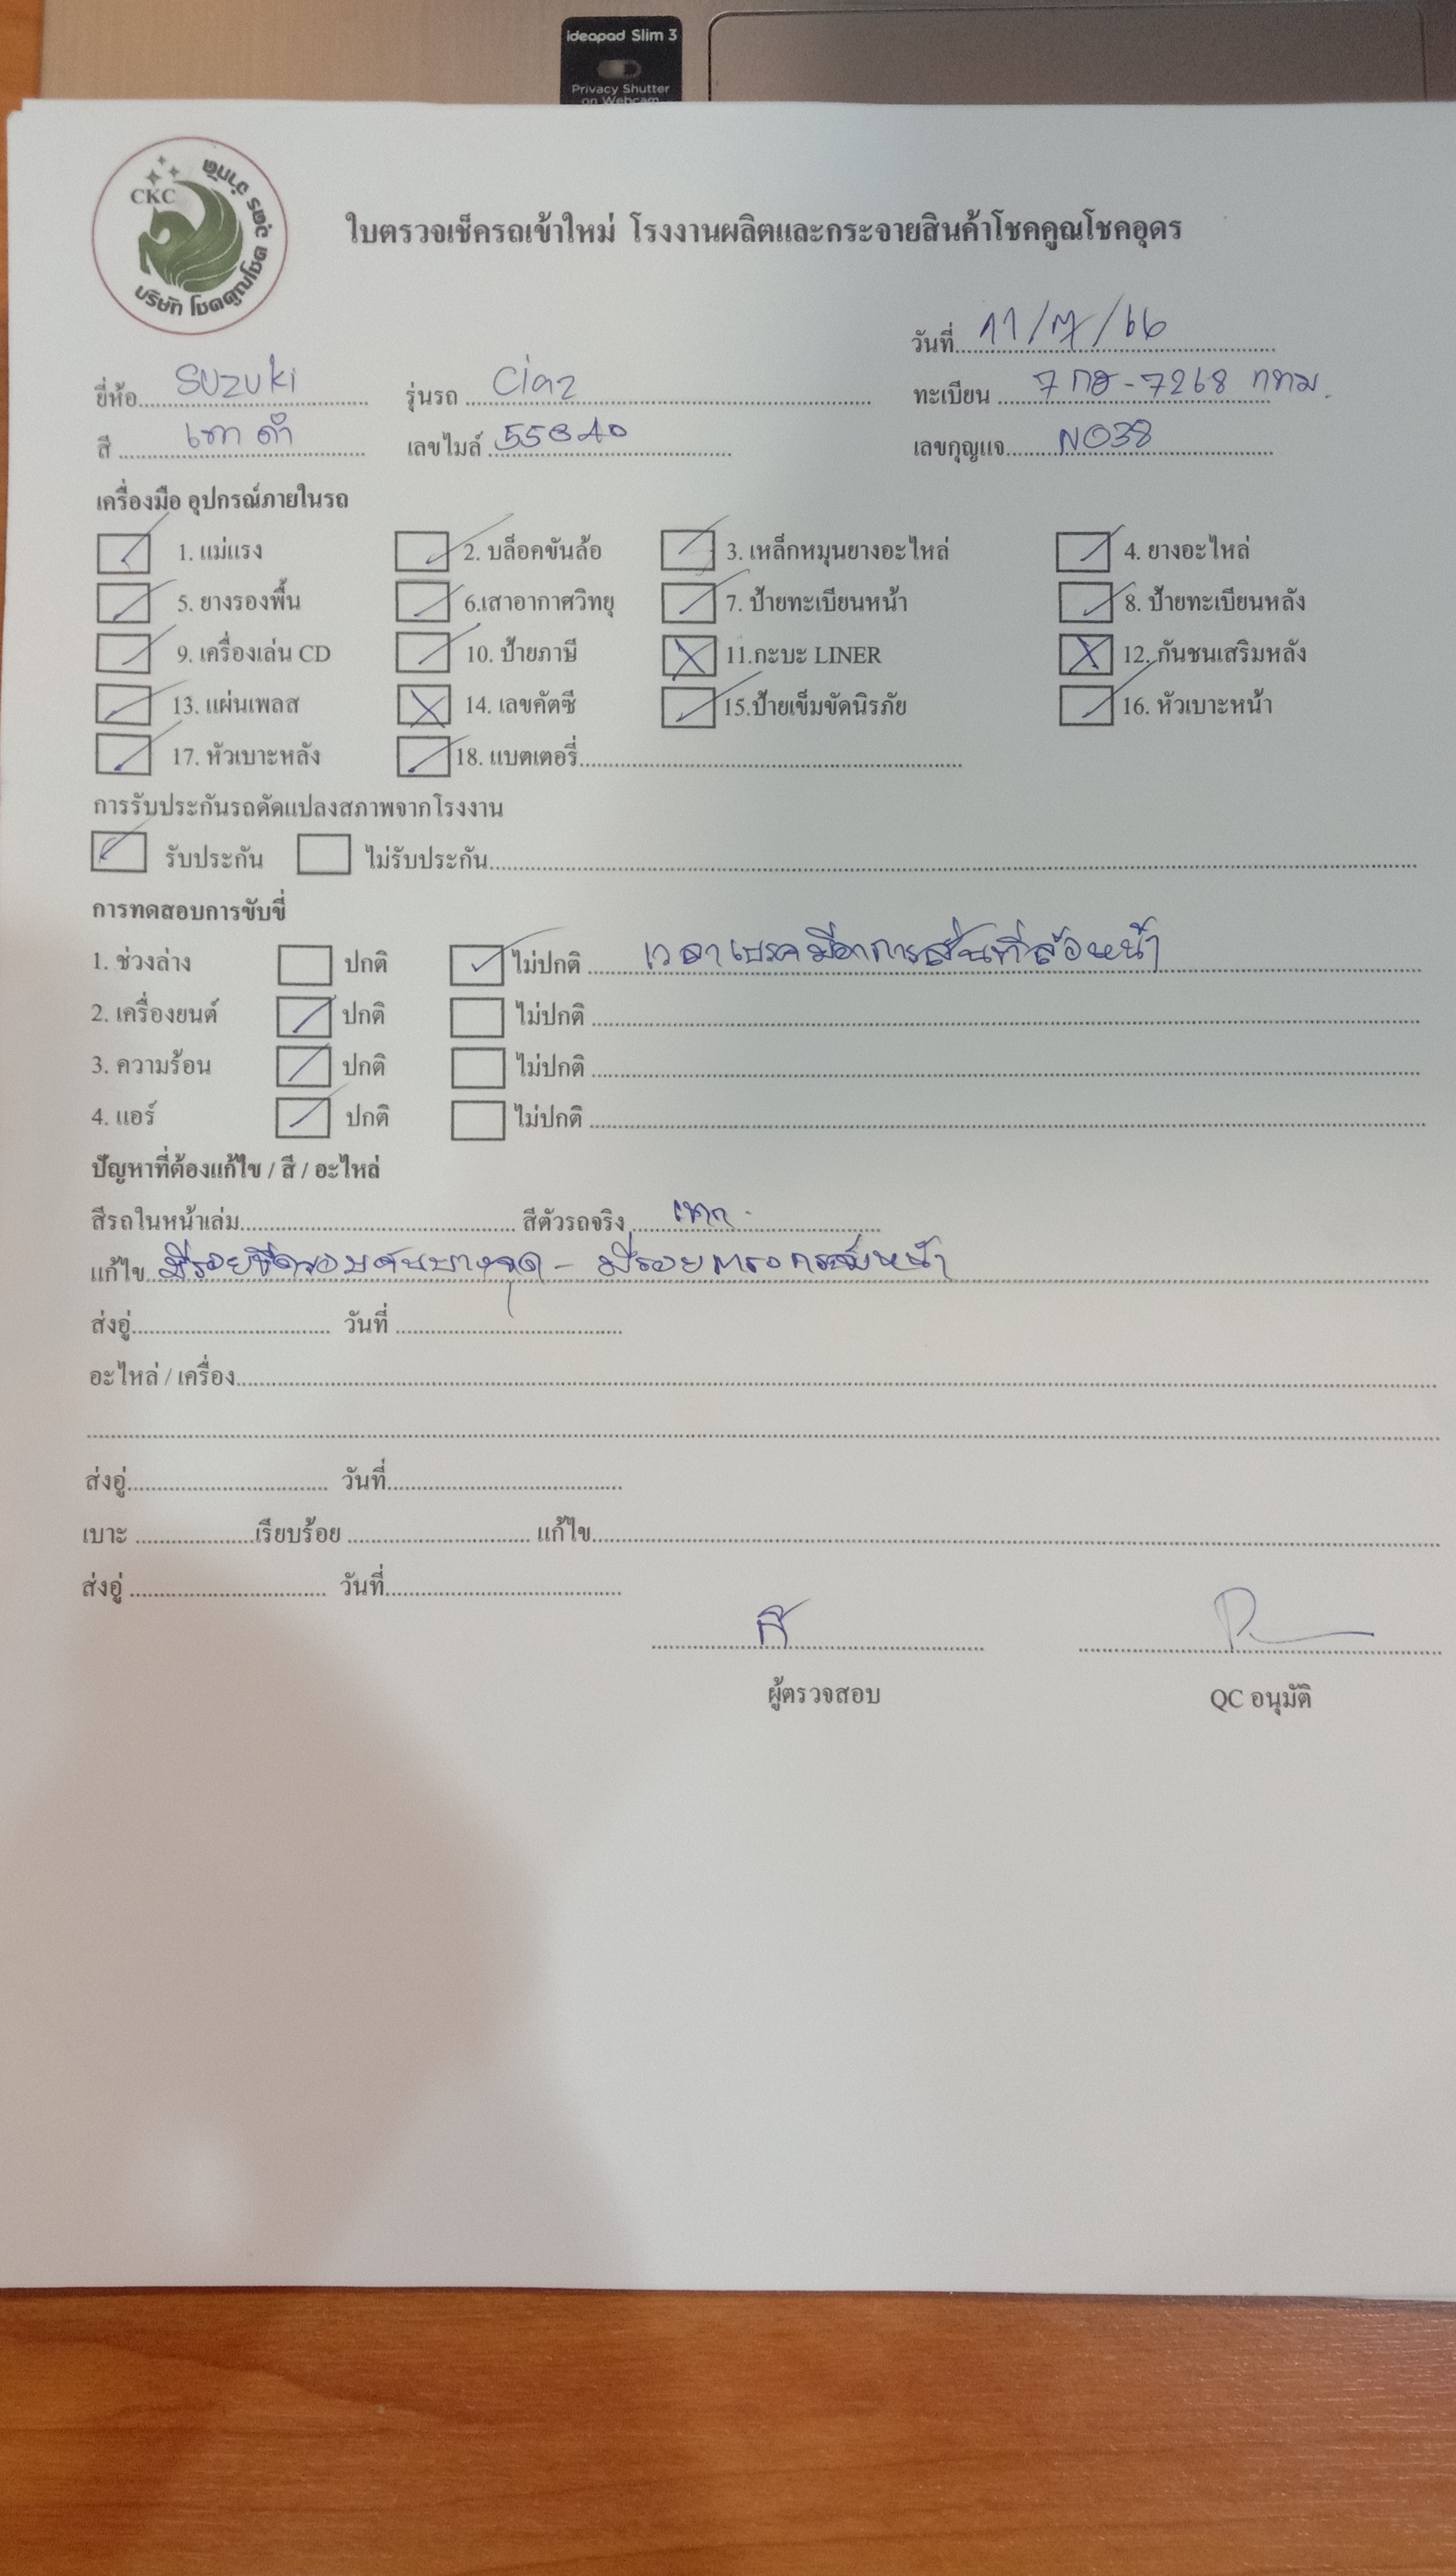 ideapad Slim 3
Privacy Shutter
on Webcam
CKC
บริษัท โชคคูณโชค อุดร จำกัด
ใบตรวจเช็ครถเข้าใหม่ โรงงานผลิตและกระจายสินค้าโชคคูณโชคอุดร
วันที่ 11/7/66
ยี่ห้อ Suzuki รุ่นรถ Ciaz ทะเบียน 7268 กทม.
สี เทาดำ เลขไมล์ เลขกุญแจ NO38
เครื่องมือ อุปกรณ์ภายในรถ
1. แม่แรง 2. บล็อคขันล้อ 3. เหล็กหมุนยางอะไหล่ 4. ยางอะไหล่
5. ยางรองพื้น 6.เสาอากาศวิทยุ 7. ป้ายทะเบียนหน้า 8. ป้ายทะเบียนหลัง
9. เครื่องเล่น CD 10. ป้ายภาษี 11.กะบะ LINER 12. กันชนเสริมหลัง
13. แผ่นเพลส 14. เลขคัตซี 15.ป้ายเข็มขัดนิรภัย 16. หัวเบาะหน้า
17. หัวเบาะหลัง 18. แบตเตอรี่
การรับประกันรถดัดแปลงสภาพจากโรงงาน
รับประกัน ไม่รับประกัน
การทดสอบการขับขี่
1. ช่วงล่าง ปกติ ไม่ปกติ เวลาเบรคมีอาการสั่นที่ล้อหน้า
2. เครื่องยนต์ ปกติ ไม่ปกติ
3. ความร้อน ปกติ ไม่ปกติ
4. แอร์ ปกติ ไม่ปกติ
ปัญหาที่ต้องแก้ไข / สี / อะไหล่
สีรถในหน้าเล่ม สีตัวรถจริง เทา
แก้ไข มีรอยขีดรอบคันบางจุด - มีรอย หน้า
ส่งอู่ วันที่
อะไหล่ / เครื่อง
ส่งอู่ วันที่
เบาะ เรียบร้อย แก้ไข
ส่งอู่ วันที่
ผู้ตรวจสอบ QC อนุมัติ